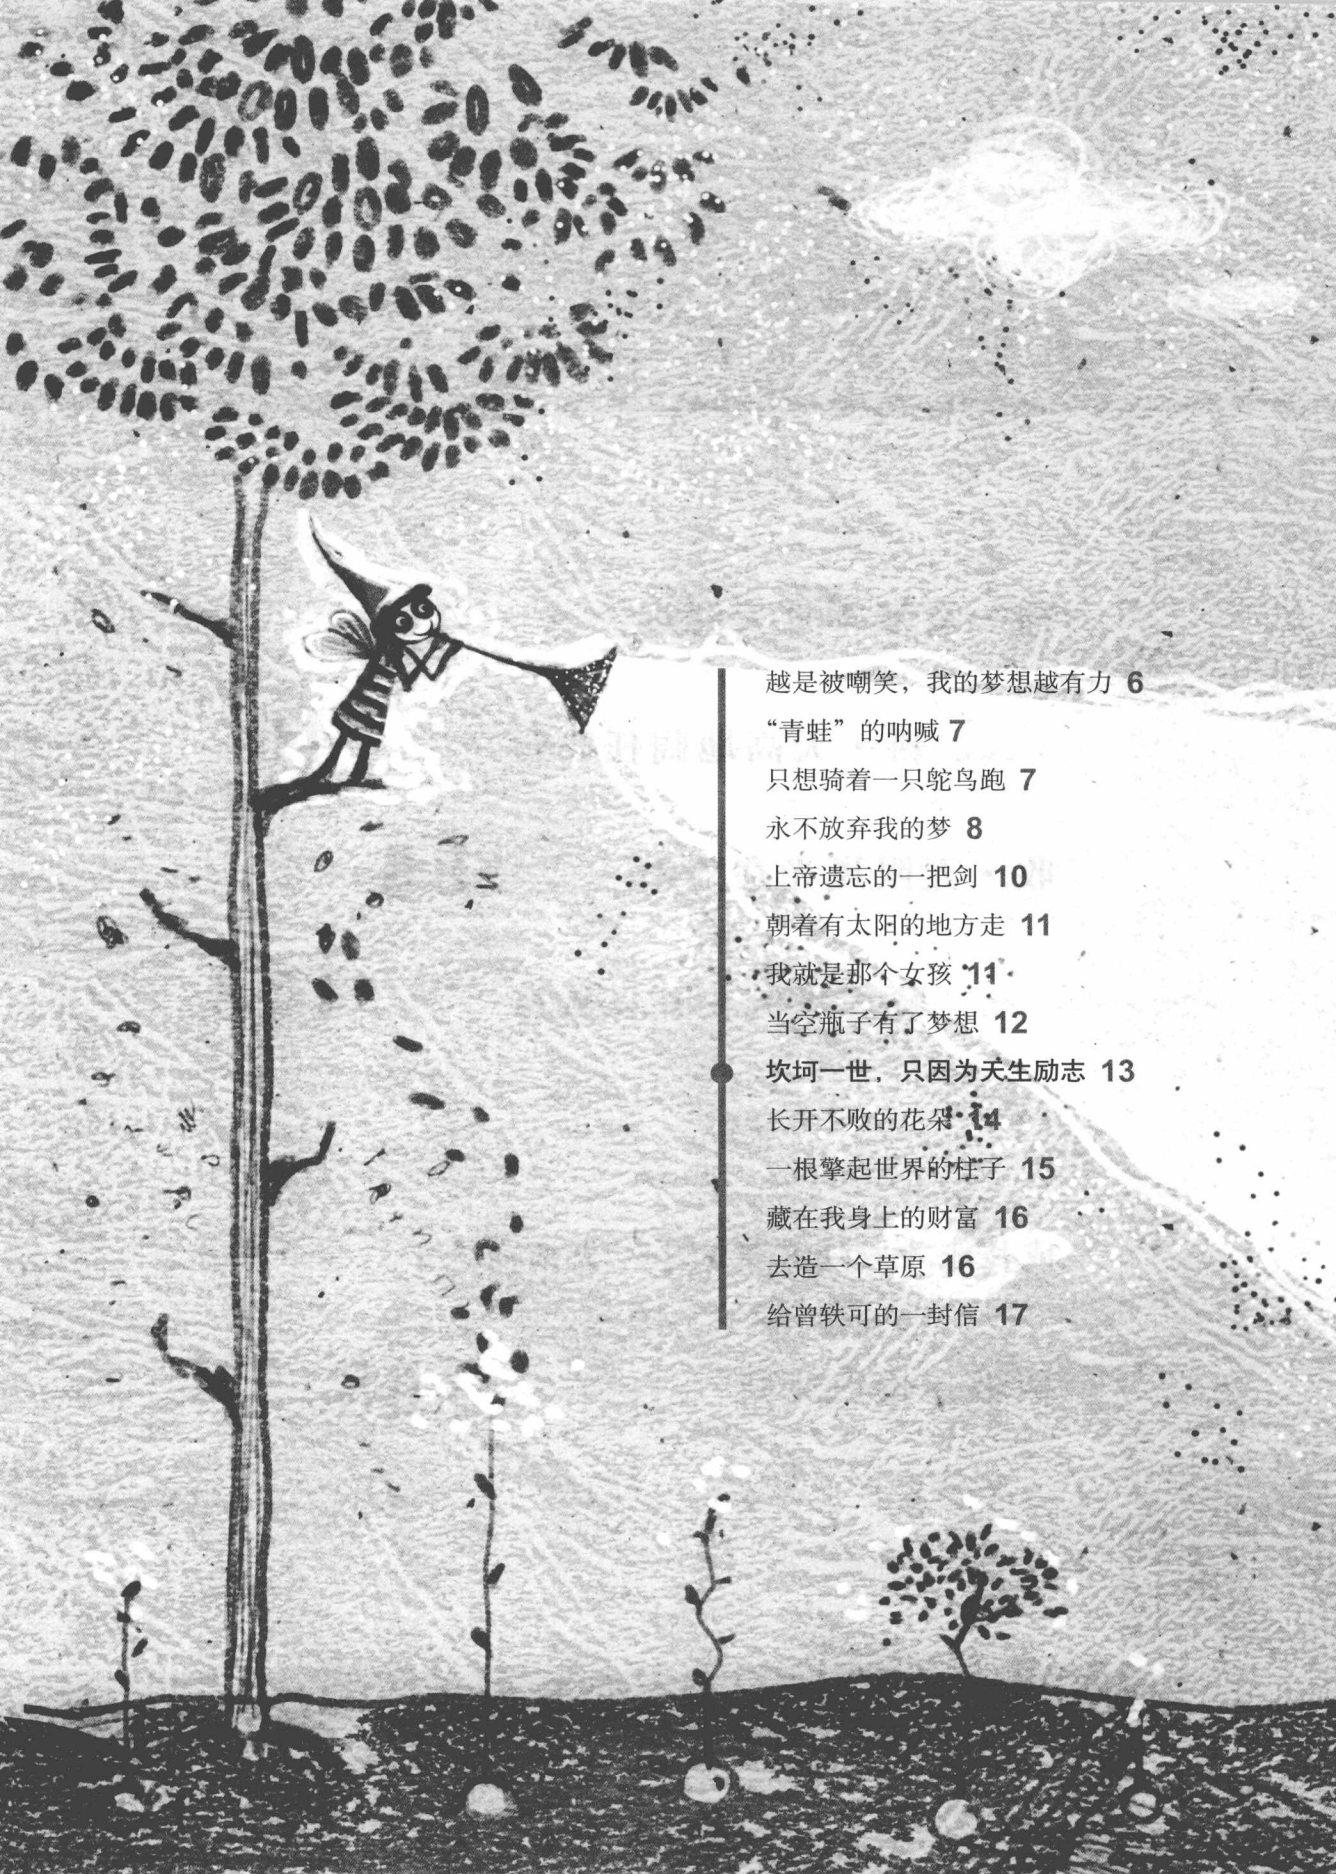 越是被嘲笑，我的梦想越有力 6
“青蛙”的呐喊 7
只想骑着一只鸵鸟跑 7
永不放弃我的梦 8
上帝遗忘的一把剑 10
朝着有太阳的地方走 11
我就是那个女孩 11
当空瓶子有了梦想 12
坎坷一世，只因为天生励志 13
长开不败的花朵 14
一根擎起世界的柱子 15
藏在我身上的财富 16
去造一个草原 16
给曾轶可的一封信 17